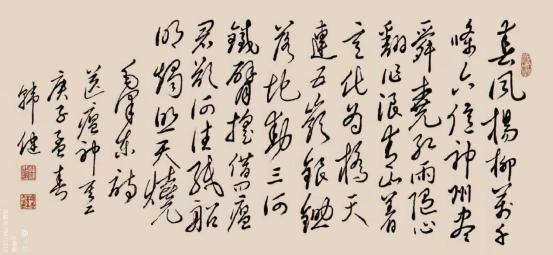 春風楊柳萬千
條六億神州盡
舜堯紅雨隨心
翻作浪青山著
意化為橋天
連五嶺銀鋤
落地動三河
鐵臂搖借問瘟
君欲何往紙船
明燭照天燒
毛澤東詩
送瘟神其二
庚子孟春
韓健